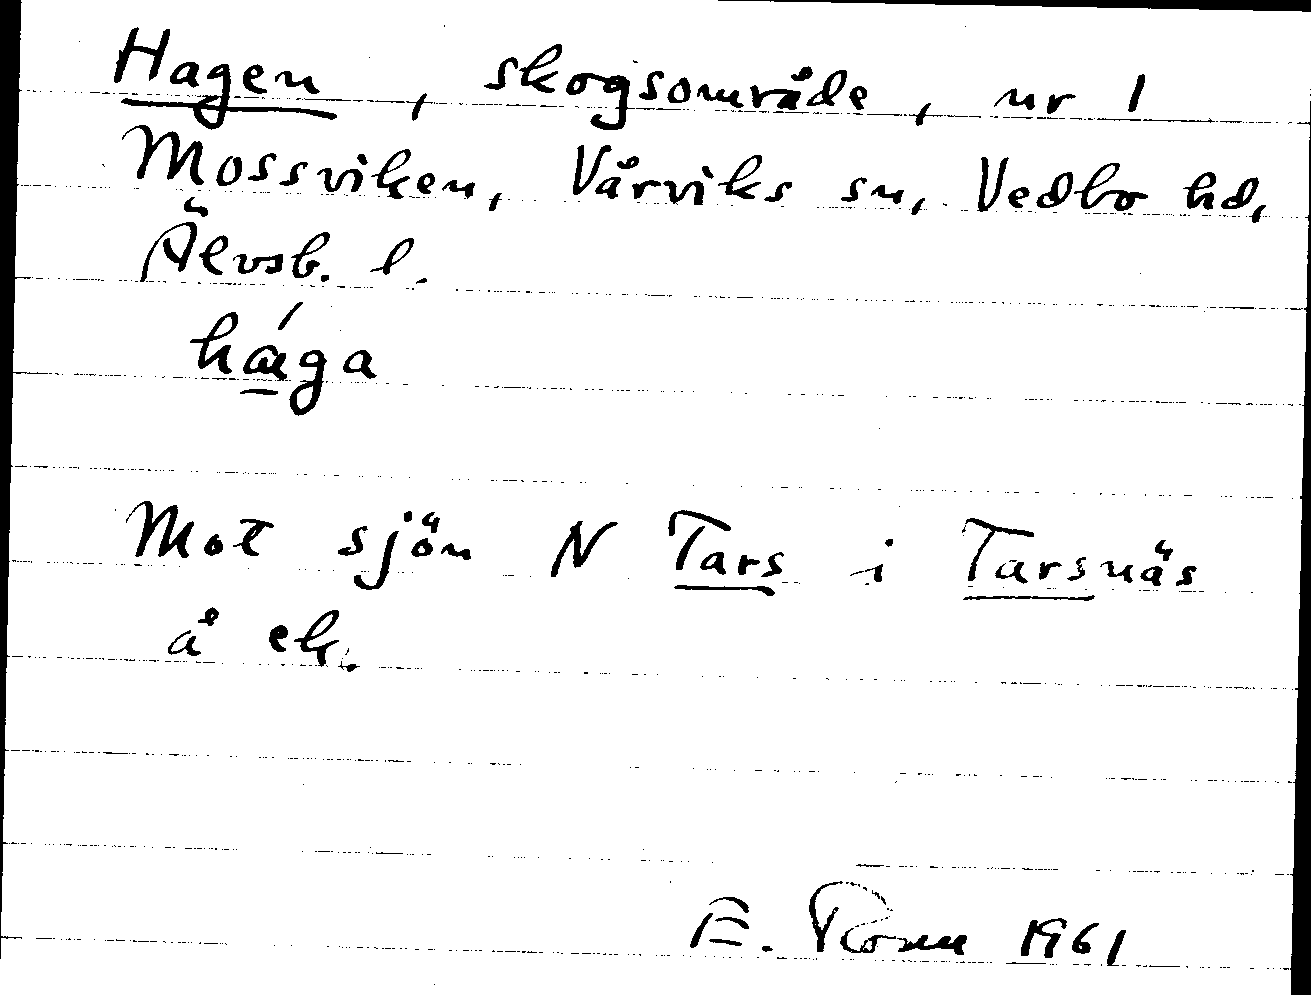 Hagen, skogsområde, nr 1
Mossviken, Vårviks sn, Vedbo hd,
Älvsb. l.
há̱ga
Mot sjön N Tars i Tarsnäs
å ek.
E. 1961